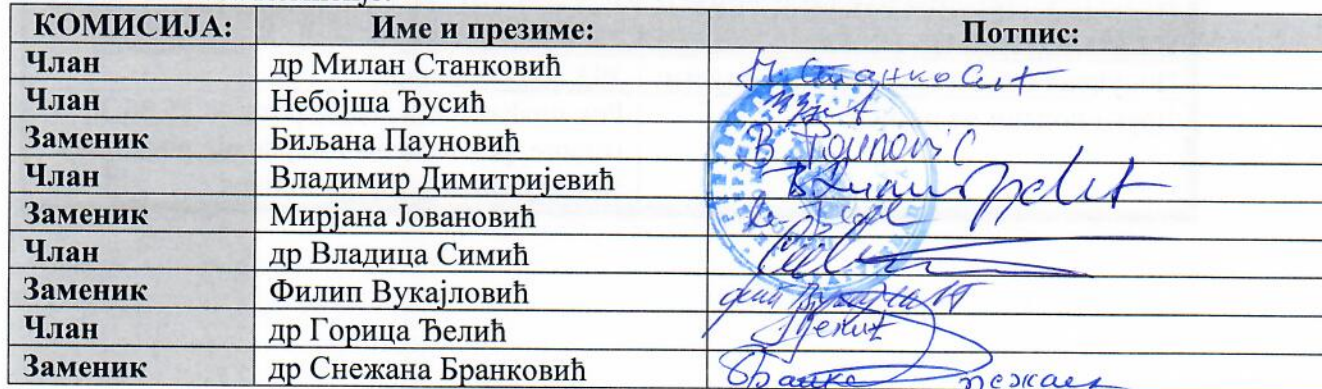 КОМИСИЈА: Име и презиме: Потпис:
Члан др Милан Станковић М. Станковић
Члан Небојша Ђусић
Заменик Биљана Пауновић B Paunović
Члан Владимир Димитријевић
Заменик Мирјана Јовановић
Члан др Владица Симић
Заменик Филип Вукајловић
Члан др Горица Ђелић
Заменик др Снежана Бранковић